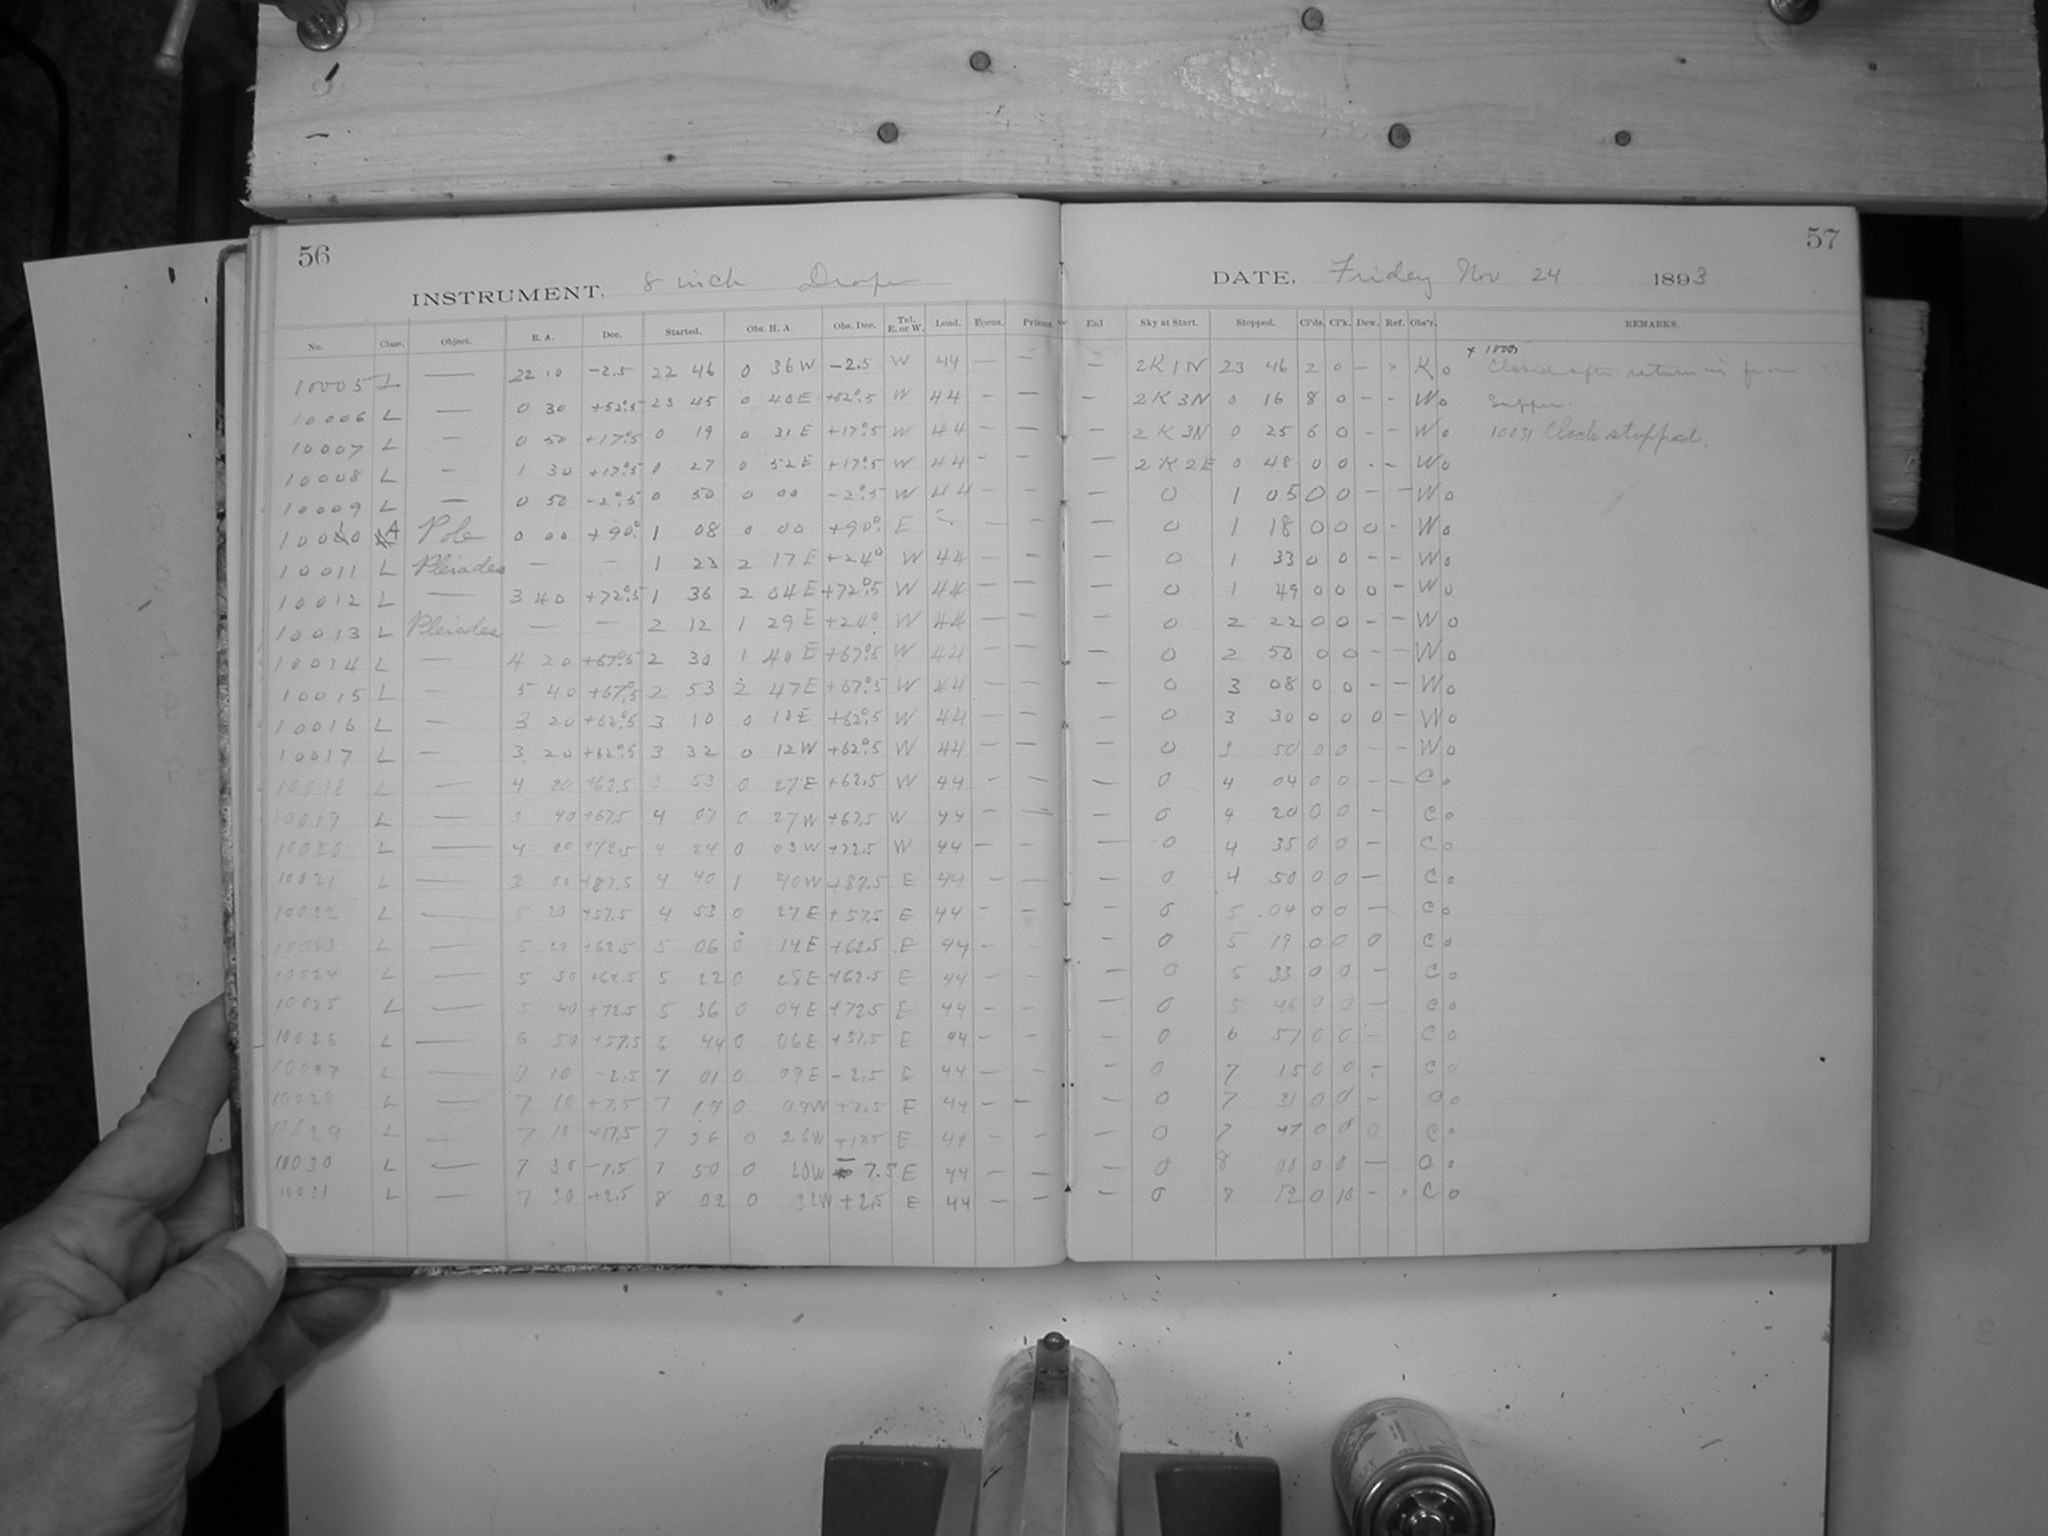 56
INSTRUMENT, 8 inch Draper
No. Class. Object. R. A. Dec. Started. Obs. H. A. Obs. Dec. Tel. E. or W. Load. Focus. Prisms.
10005 L — 22 10 -2.5 22 46 0 36W -2.5 W 44 — —
10006 L — 0 30 +52°.5 23 45 0 40E +52°.5 W 44 — —
10007 L — 0 50 +17°.5 0 19 0 31E +17°.5 W 44 — —
10008 L — 1 30 +17°.5 0 27 0 52E +17°.5 W 44 — —
10009 L — 0 50 -2°.5 0 50 0 00 -2°.5 W 44 — —
10010 A Pole 0 00 +90° 1 08 0 00 +90° E — —
10011 L Pleiades — — 1 23 2 17E +24° W 44 — —
10012 L — 3 40 +72°.5 1 36 2 04E +72°.5 W 44 — —
10013 L Pleiades — — 2 12 1 29E +24° W 44 — —
10014 L — 4 20 +67°.5 2 30 1 40E +67°.5 W 44 — —
10015 L — 5 40 +67°.5 2 53 2 47E +67°.5 W 44 — —
10016 L — 3 20 +62°.5 3 10 0 10E +62°.5 W 44 — —
10017 L — 3 20 +62°.5 3 32 0 12W +62°.5 W 44 — —
10018 L — 4 20 +62.5 3 53 0 27E +62.5 W 44 — —
10019 L — 3 40 +67.5 4 07 0 27W +67.5 W 44 — —
10020 L — 4 20 +72.5 4 24 0 03W +72.5 W 44 — —
10021 L — +87.5 4 40 1 40W +87.5 E 44 — —
10022 L — 5 20 +57.5 4 53 0 27E +57.5 E 44 — —
10023 L — 5 20 +62.5 5 06 0 14E +62.5 E 44 — —
10024 L — 5 50 +62.5 5 22 0 28E +62.5 E 44 — —
10025 L — 5 40 +72.5 5 36 0 04E +72.5 E 44 — —
10026 L — 6 50 +57.5 6 44 0 06E +57.5 E 44 — —
10027 L — 7 10 -2.5 7 01 0 09E -2.5 E 44 — —
10028 L — 7 10 +7.5 7 19 0 09W +7.5 E 44 — —
10029 L — 7 10 +17.5 7 36 0 26W E 44 — —
10030 L — 7 30 -7.5 7 50 0 20W - 7.5 E 44 — —
10031 L — 7 30 +2.5 8 02 0 32W +2.5 E 44 — —
57
DATE, Friday Nov 24 1893
Sky at Start. Stopped. Cl'ds. Cl'k. Dew. Ref. Obs'r. REMARKS.
— 2K1N 23 46 2 0 — × K o × 10005 Closed after return in from
— 2K3N 0 16 8 0 - - W o Supper.
— 2K3N 0 25 6 0 - - W o 10031 Clock stopped.
— 2K2E 0 48 0 0 - - W o
— 0 1 05 0 0 - - W o
— 0 1 18 0 0 0 - W o
— 0 1 33 0 0 - - W o
— 0 1 49 0 0 0 - W o
— 0 2 22 0 0 - - W o
— 0 2 50 0 0 - - W o
— 0 3 08 0 0 - - W o
— 0 3 30 0 0 0 - W o
— 0 3 50 0 0 - - W o
— 0 4 04 0 0 - - C o
— 0 4 20 0 0 - C o
— 0 4 35 0 0 - C o
— 0 4 50 0 0 — C o
— 0 5 04 0 0 — C o
— 0 5 19 0 0 0 C o
— 0 5 33 0 0 - C o
— 0 5 46 0 0 — C o
— 0 6 57 0 0 - C o
— 0 7 15 0 0 - C o
— 0 7 31 0 0 - C o
— 0 7 47 0 0 0 C o
— 0 8 00 0 0 — C o
— 0 8 12 0 10 - × C o